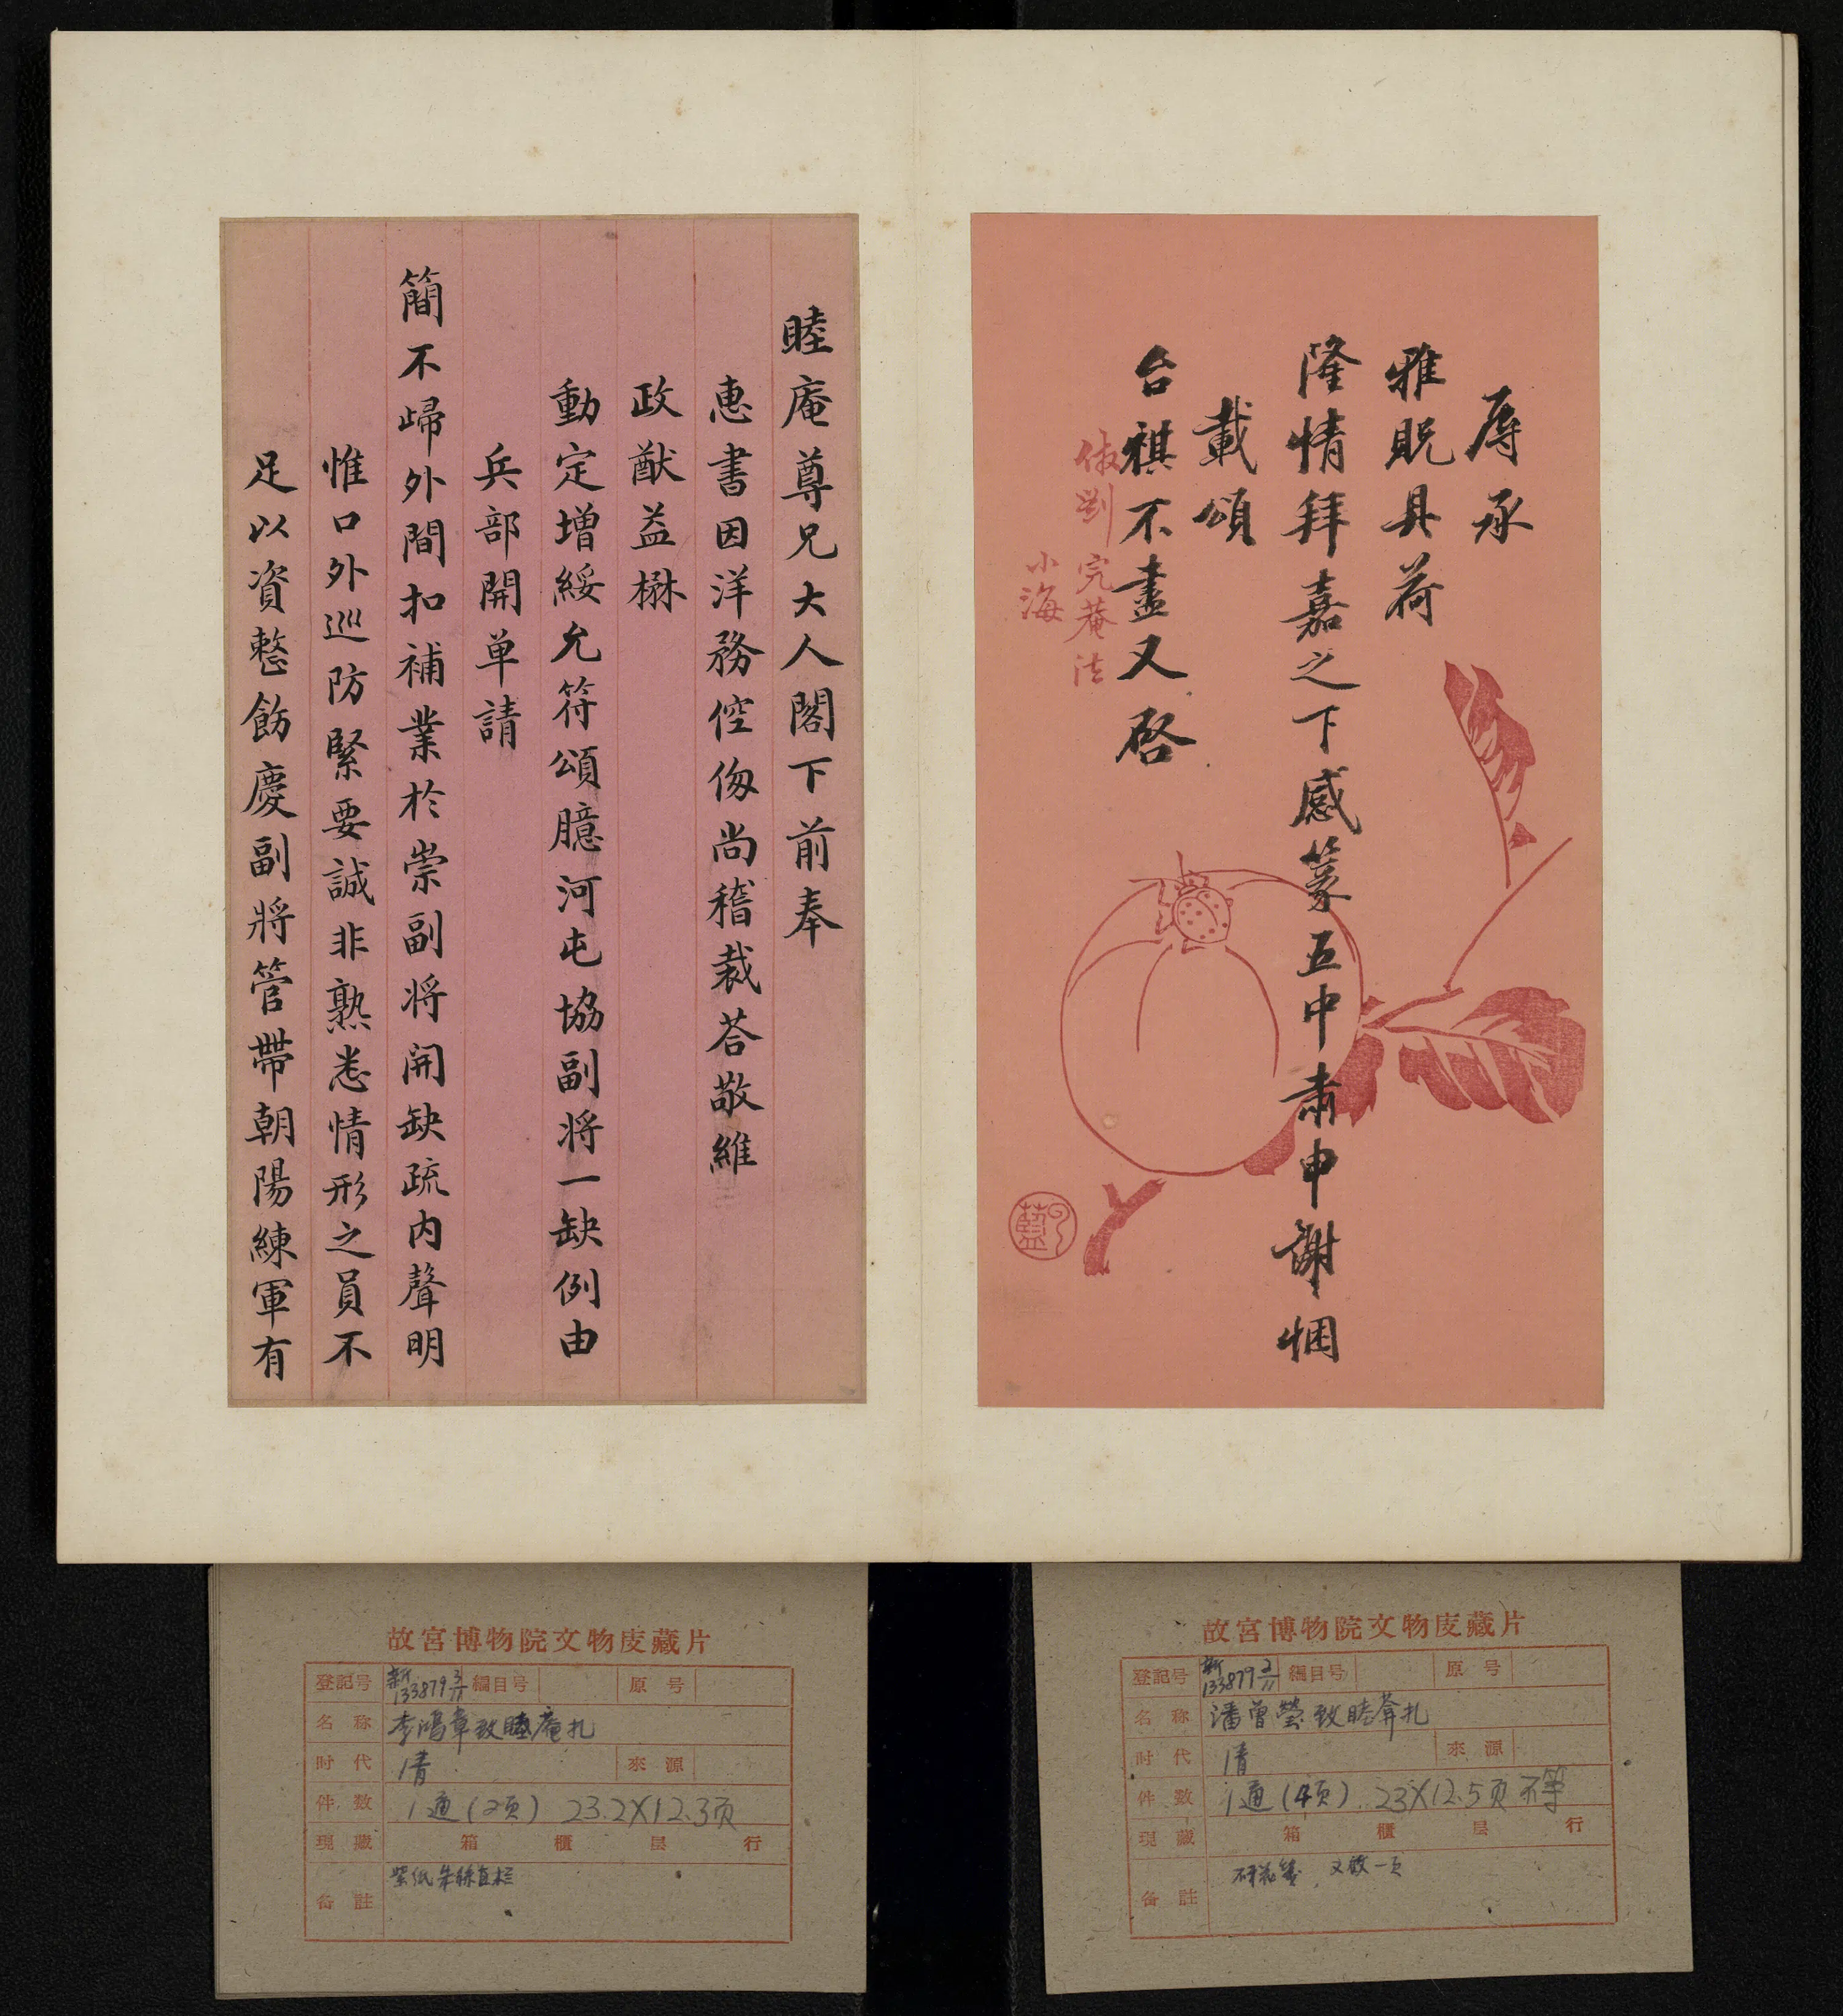 辱承
雅貺具荷
隆情拜嘉之下感篆五中肅申謝悃
載頌
台祺不盡又啓
仿劉完菴法
小海
睦庵尊兄大人閣下前奉
惠書因洋務倥傯尚稽裁荅敬維
政猷益楙
動定增綏允符頌臆河屯協副將一缺例由
兵部開单請
簡不歸外間扣補業於崇副將開缺疏內聲明
惟口外巡防緊要誠非熟悉情形之員不
足以資整飭慶副將管帶朝陽練軍有
故宮博物院文物庋藏片
登記号 新133879 2/11 編目号 原号
名称 潘曾瑩致睦葊扎
时代 清 來源
件数 1通(4页).23X12.5页不等
現藏 箱 櫃 层 行
备註 砑花笺,又啟一页
故宮博物院文物庋藏片
登記号 新133879 3/11 編目号 原号
名称 李鴻章致睦庵扎
时代 清 來源
件数 1通(2页) 23.2X12.3页
現藏 箱 櫃 层 行
备註 紫纸朱絲直栏